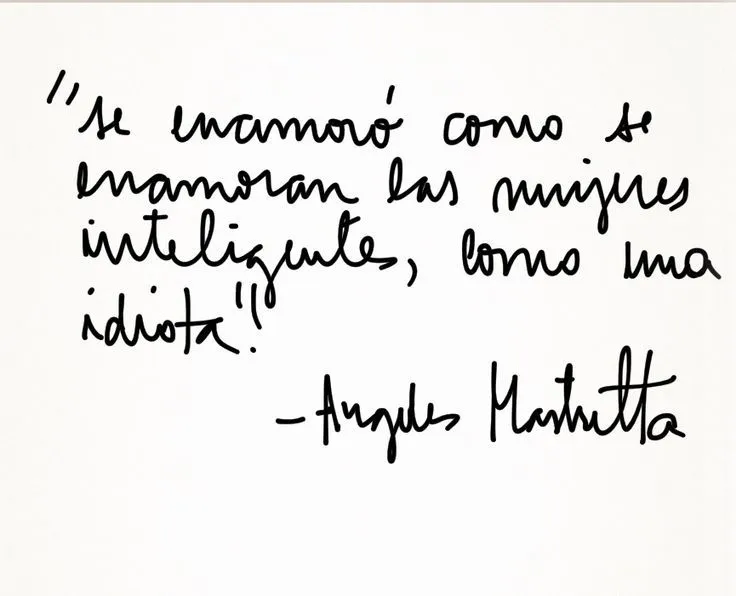 "se enamoró como se
enamoran las mujeres
inteligentes, como una
idiota".
- Angeles Mastretta